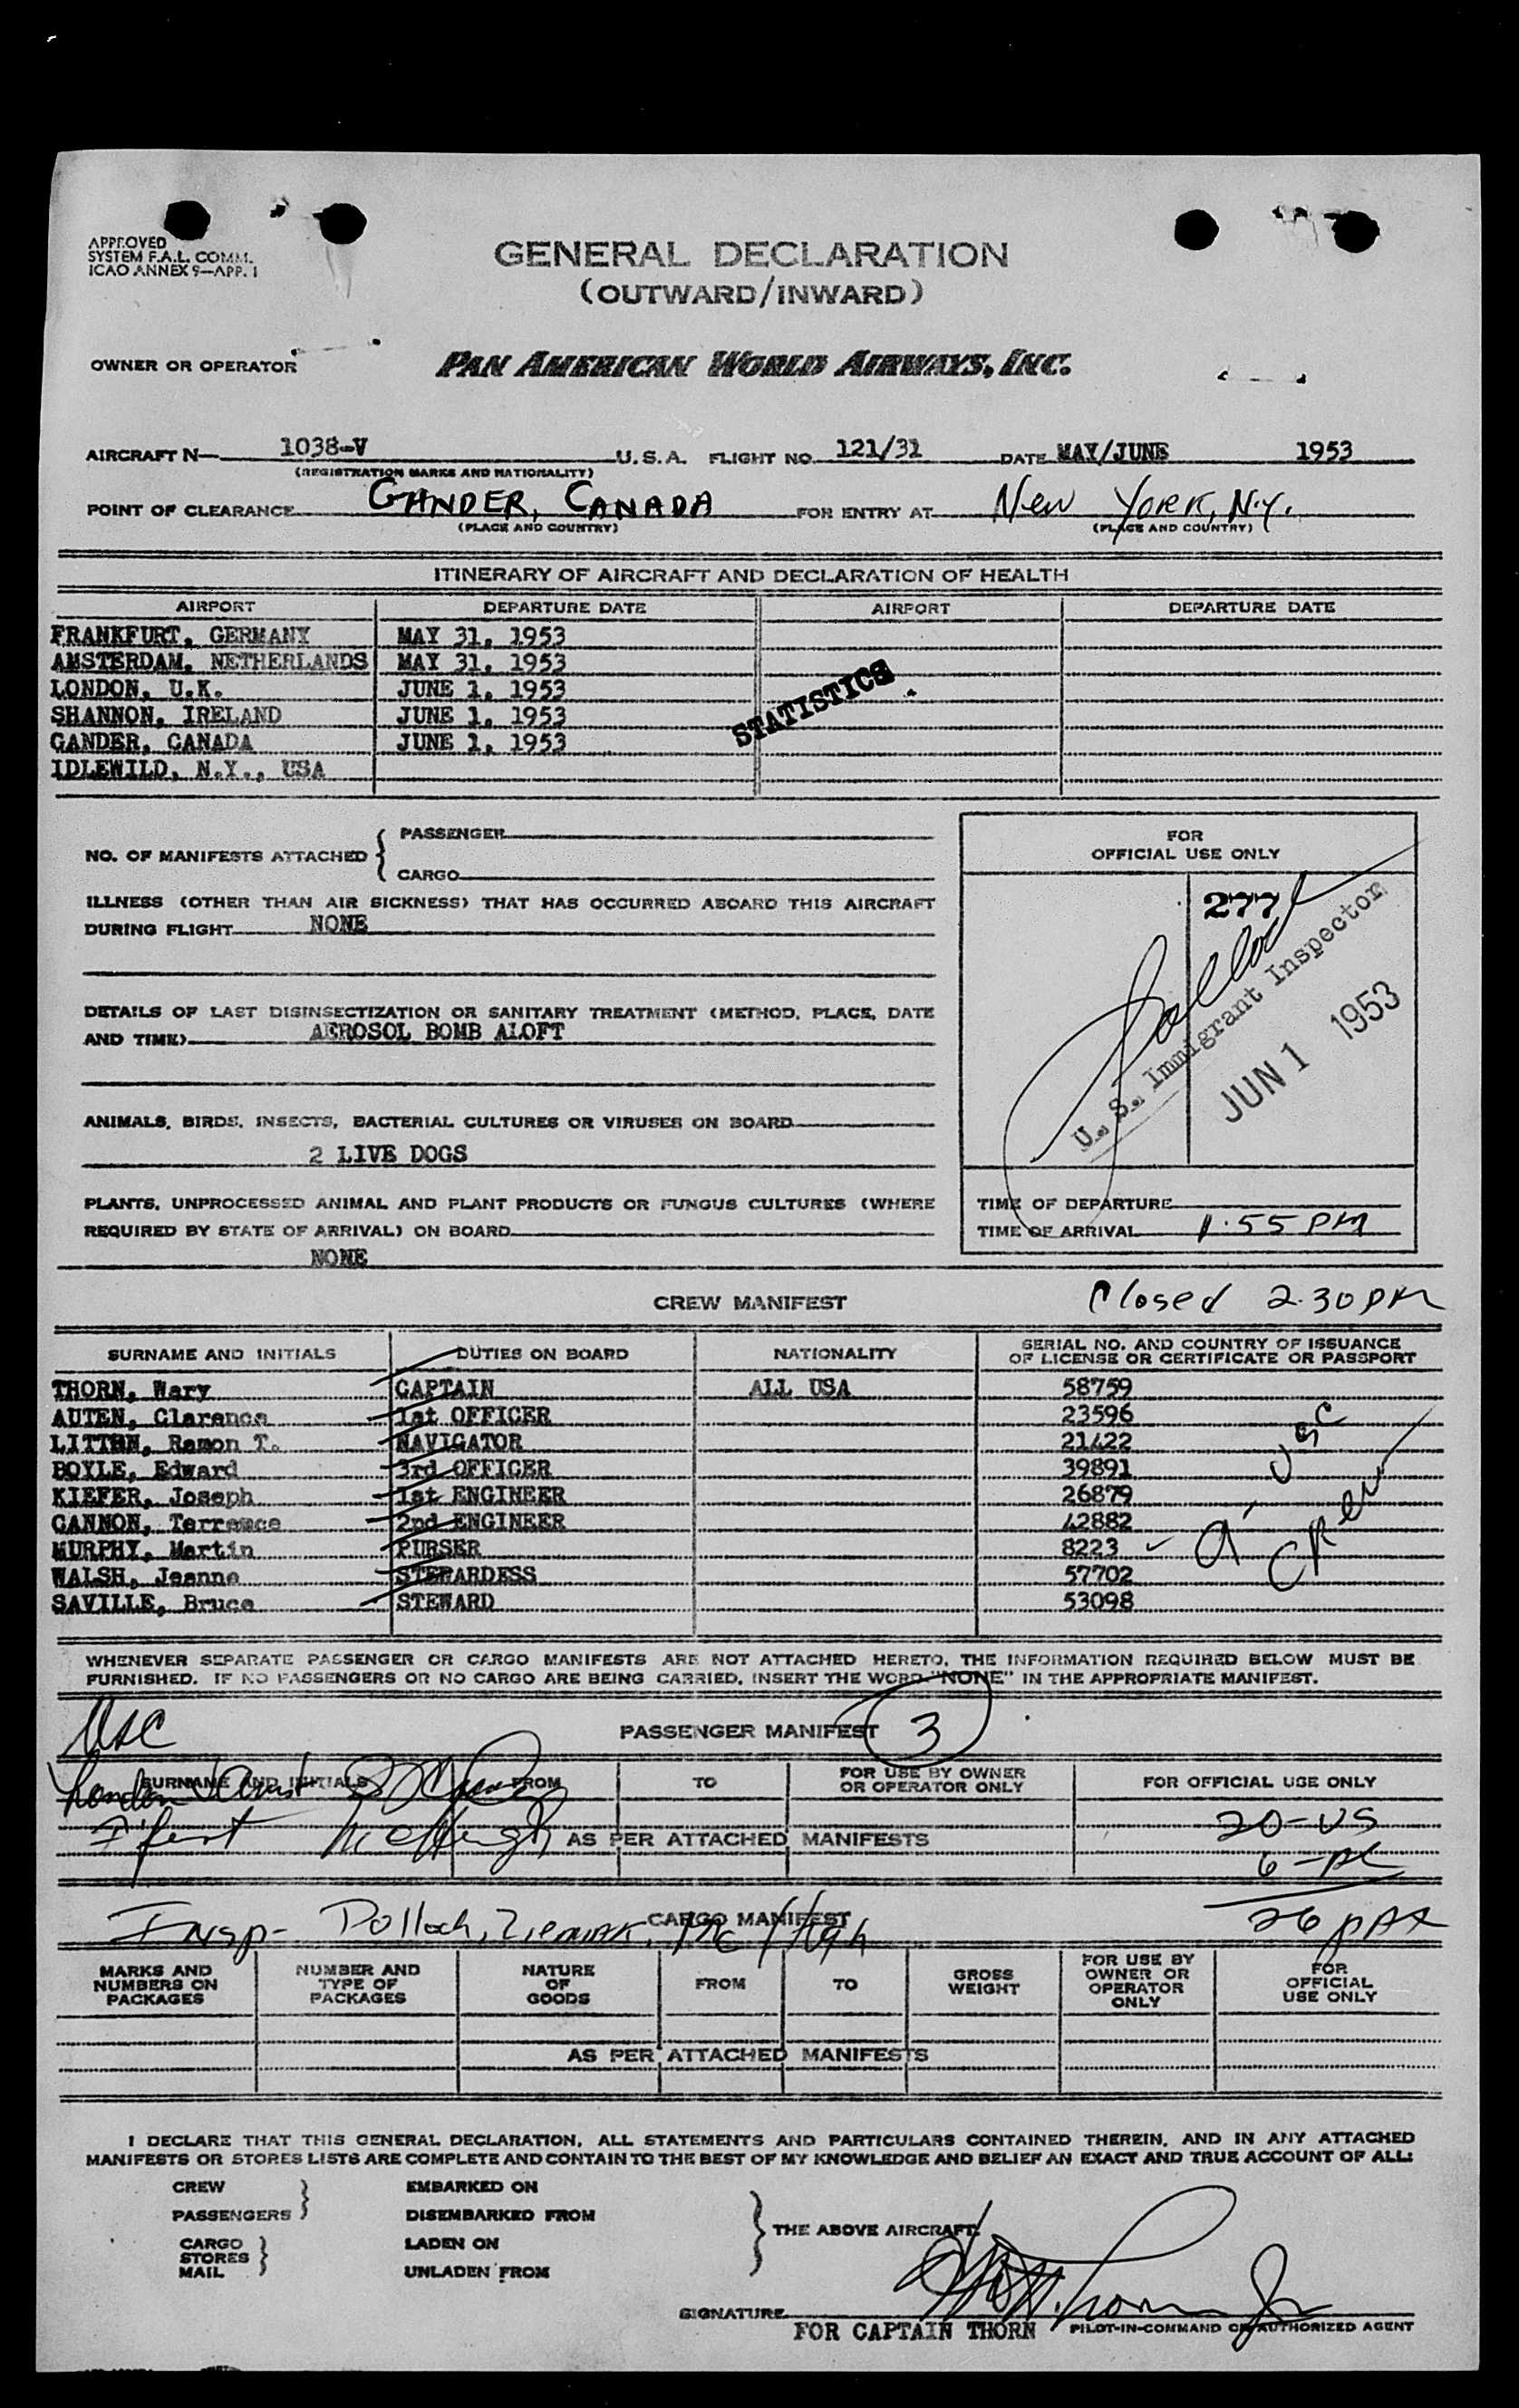 APPROVED
SYSTEM F.A.L. COMM.
ICAO ANNEX 9—APP. 1
GENERAL DECLARATION
(OUTWARD/INWARD)
OWNER OR OPERATOR PAN AMERICAN WORLD AIRWAYS, INC.
AIRCRAFT N— 1038-V U.S.A. FLIGHT NO. 121/31 DATE MAY/JUNE 1953
(REGISTRATION MARKS AND NATIONALITY)
POINT OF CLEARANCE GANDER, CANADA FOR ENTRY AT New York, N.Y.
(PLACE AND COUNTRY) (PLACE AND COUNTRY)
ITINERARY OF AIRCRAFT AND DECLARATION OF HEALTH
AIRPORT DEPARTURE DATE AIRPORT DEPARTURE DATE
FRANKFURT, GERMANY MAY 31, 1953
AMSTERDAM, NETHERLANDS MAY 31, 1953
LONDON, U.K. JUNE 1, 1953
SHANNON, IRELAND JUNE 1, 1953
GANDER, CANADA JUNE 1, 1953
IDLEWILD, N.Y., USA
STATISTICS
NO. OF MANIFESTS ATTACHED { PASSENGER
CARGO
ILLNESS (OTHER THAN AIR SICKNESS) THAT HAS OCCURRED ABOARD THIS AIRCRAFT
DURING FLIGHT NONE
DETAILS OF LAST DISINSECTIZATION OR SANITARY TREATMENT (METHOD, PLACE, DATE
AND TIME) AEROSOL BOMB ALOFT
ANIMALS, BIRDS, INSECTS, BACTERIAL CULTURES OR VIRUSES ON BOARD
2 LIVE DOGS
PLANTS, UNPROCESSED ANIMAL AND PLANT PRODUCTS OR FUNGUS CULTURES (WHERE
REQUIRED BY STATE OF ARRIVAL) ON BOARD
NONE
FOR
OFFICIAL USE ONLY
277
Pollock
U. S. Immigrant Inspector
JUN 1 1953
TIME OF DEPARTURE
TIME OF ARRIVAL 1.55 PM
CREW MANIFEST Closed 2.30 PM
SURNAME AND INITIALS DUTIES ON BOARD NATIONALITY SERIAL NO. AND COUNTRY OF ISSUANCE
OF LICENSE OR CERTIFICATE OR PASSPORT
THORN, Wary CAPTAIN ALL USA 58759
AUTEN, Clarence 1st OFFICER 23596
Ramon T. NAVIGATOR 21422
BOYLE, Edward 3rd OFFICER 39891
KIEFER, Joseph 1st ENGINEER 26879
CANNON, Terrence 2nd ENGINEER 42882
MURPHY, Martin PURSER 8223
WALSH, Jeanne STEWARDESS 57702
SAVILLE, Bruce STEWARD 53098
9 - USC
Crew
WHENEVER SEPARATE PASSENGER OR CARGO MANIFESTS ARE NOT ATTACHED HERETO, THE INFORMATION REQUIRED BELOW MUST BE
FURNISHED. IF NO PASSENGERS OR NO CARGO ARE BEING CARRIED, INSERT THE WORD "NONE" IN THE APPROPRIATE MANIFEST.
PASSENGER MANIFEST 3
SURNAME AND INITIALS FROM TO FOR USE BY OWNER
OR OPERATOR ONLY FOR OFFICIAL USE ONLY
London
AS PER ATTACHED MANIFESTS
20-US
6-
26
Insp- Pollock,
CARGO MANIFEST
MARKS AND
NUMBERS ON
PACKAGES
NUMBER AND
TYPE OF
PACKAGES
NATURE
OF
GOODS
FROM
TO
GROSS
WEIGHT
FOR USE BY
OWNER OR
OPERATOR
ONLY
FOR
OFFICIAL
USE ONLY
AS PER ATTACHED MANIFESTS
I DECLARE THAT THIS GENERAL DECLARATION, ALL STATEMENTS AND PARTICULARS CONTAINED THEREIN, AND IN ANY ATTACHED
MANIFESTS OR STORES LISTS ARE COMPLETE AND CONTAIN TO THE BEST OF MY KNOWLEDGE AND BELIEF AN EXACT AND TRUE ACCOUNT OF ALL:
CREW EMBARKED ON
PASSENGERS DISEMBARKED FROM
CARGO LADEN ON
STORES
MAIL UNLADEN FROM
THE ABOVE AIRCRAFT.
SIGNATURE
FOR CAPTAIN THORN PILOT-IN-COMMAND OR AUTHORIZED AGENT